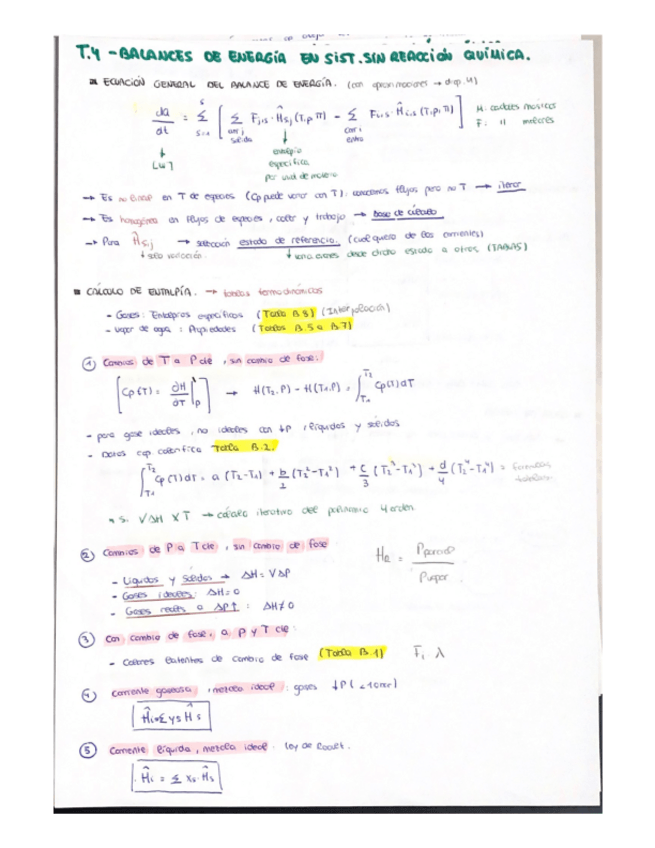 T.4 - BALANCES DE ENERGÍA EN SIST. SIN REACCIÓN QUÍMICA.
ECUACIÓN GENERAL DEL BALANCE DE ENERGÍA. (con aproximaciones →
dQ/dt = Σ [ Σ Fj,s · Ĥs,j (T, P, Π) - Σ Fi,s · Ĥi,s (T, P, Π) ]
S=1
salida
entra
F: molares
entalpía
específica
por unid de
→ Es no lineal en T de especies (Cp puede variar con T). conocemos flujos pero no T → iterar
→ Es homogénea en flujos de especies, calor y trabajo → base de cálculo
→ Para Ĥs,j → selección estado de referencia. (cualquiera de las corrientes)
↓ sólo variación. ↓ variaciones desde dicho estado a otros (TABLAS)
CÁLCULO DE ENTALPÍA. → tablas termodinámicas
- Gases: Entalpías específicas (Tabla B.8) (Interpolación)
- Vapor de agua: Propiedades (Tablas B.5 a B.7)
① Cambios de T a P cte, sin cambio de fase:
[Cp(T) = ∂H/∂T |P] → H(T2,P) - H(T1,P) = ∫T1T2 Cp(T)dT
- para gases ideales, no ideales con ↓P, líquidos y sólidos
- Datos cap calorífica Tabla B.2.
∫T1T2 Cp(T)dT = a (T2-T1) + b/2 (T2²-T1²) + c/3 (T2³-T1³) + d/4 (T2⁴-T1⁴) = fórmulas
Si V ΔH X T → cálculo iterativo del polinomio 4 orden
② Cambios de P a T cte, sin cambio de fase
- Líquidos y sólidos → ΔH = VΔP
- Gases ideales: ΔH=0
- Gases reales a ΔP↑: ΔH≠0
③ Con cambio de fase, a P y T cte:
- Calores latentes de cambio de fase (Tabla B.1) Fi λ
④ Corriente gaseosa, mezcla ideal: gases ↓P (<10
Ĥi = Σ ys Ĥs
⑤ Corriente líquida, mezcla ideal: ley de Raoult.
Ĥi = Σ xs · Ĥs